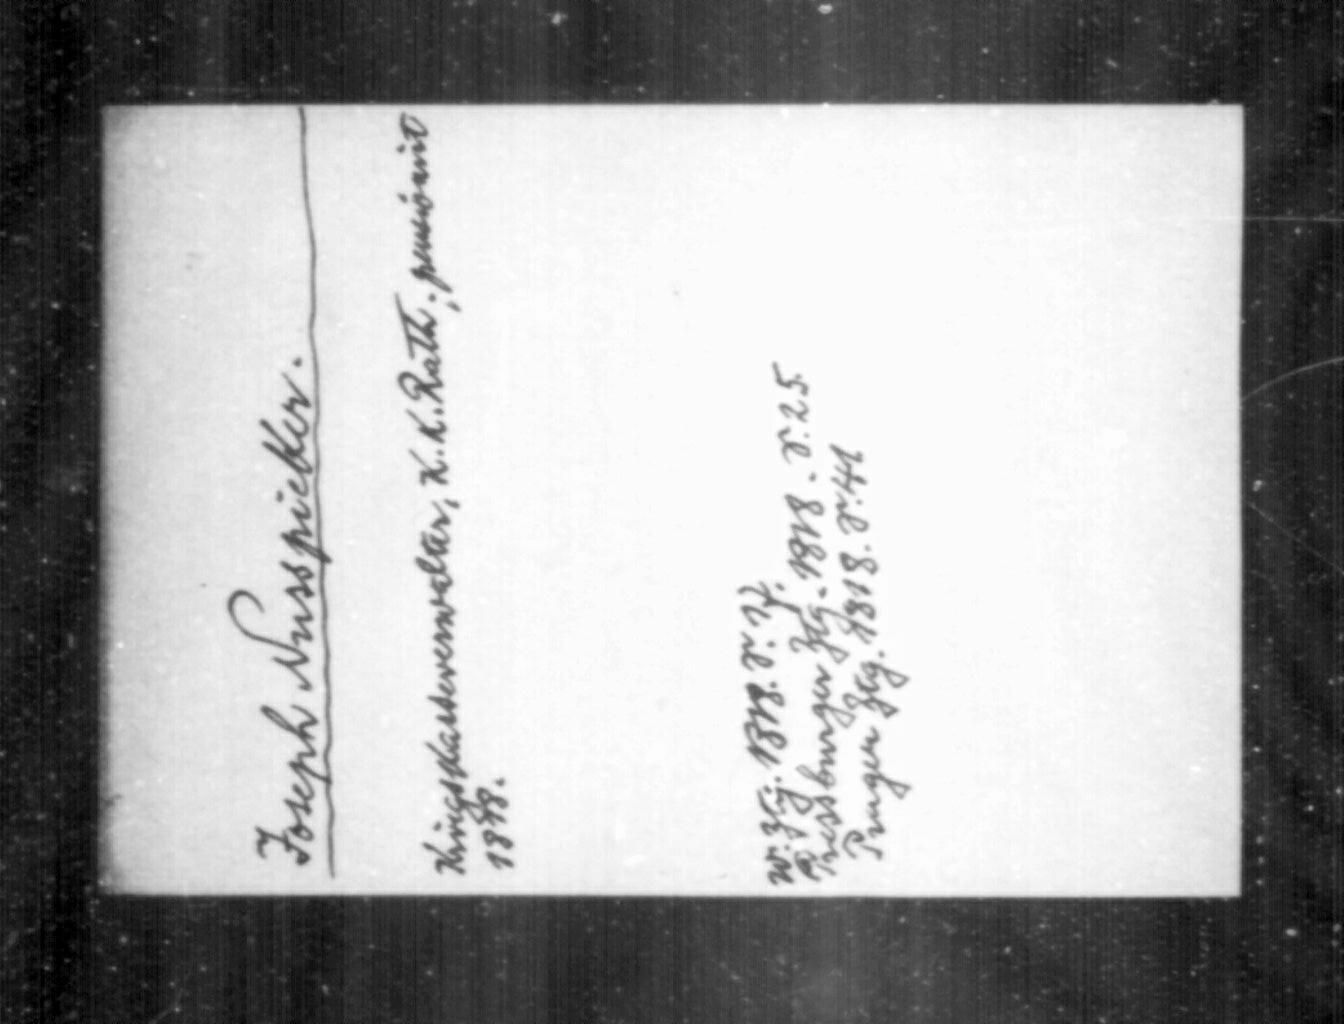 Joseph Nusspicker.
Kriegskasseverwalter, K. K. Rath; pensionirt
1818.
W. Ztg. 1818. Nr. 17.
Pressburger Ztg. 1818. Nr. 25.
Prager Ztg. 1818. Nr. 41